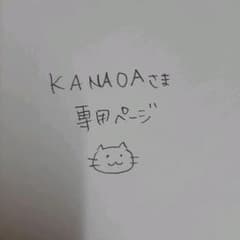 KANAOAさま
専用ページ